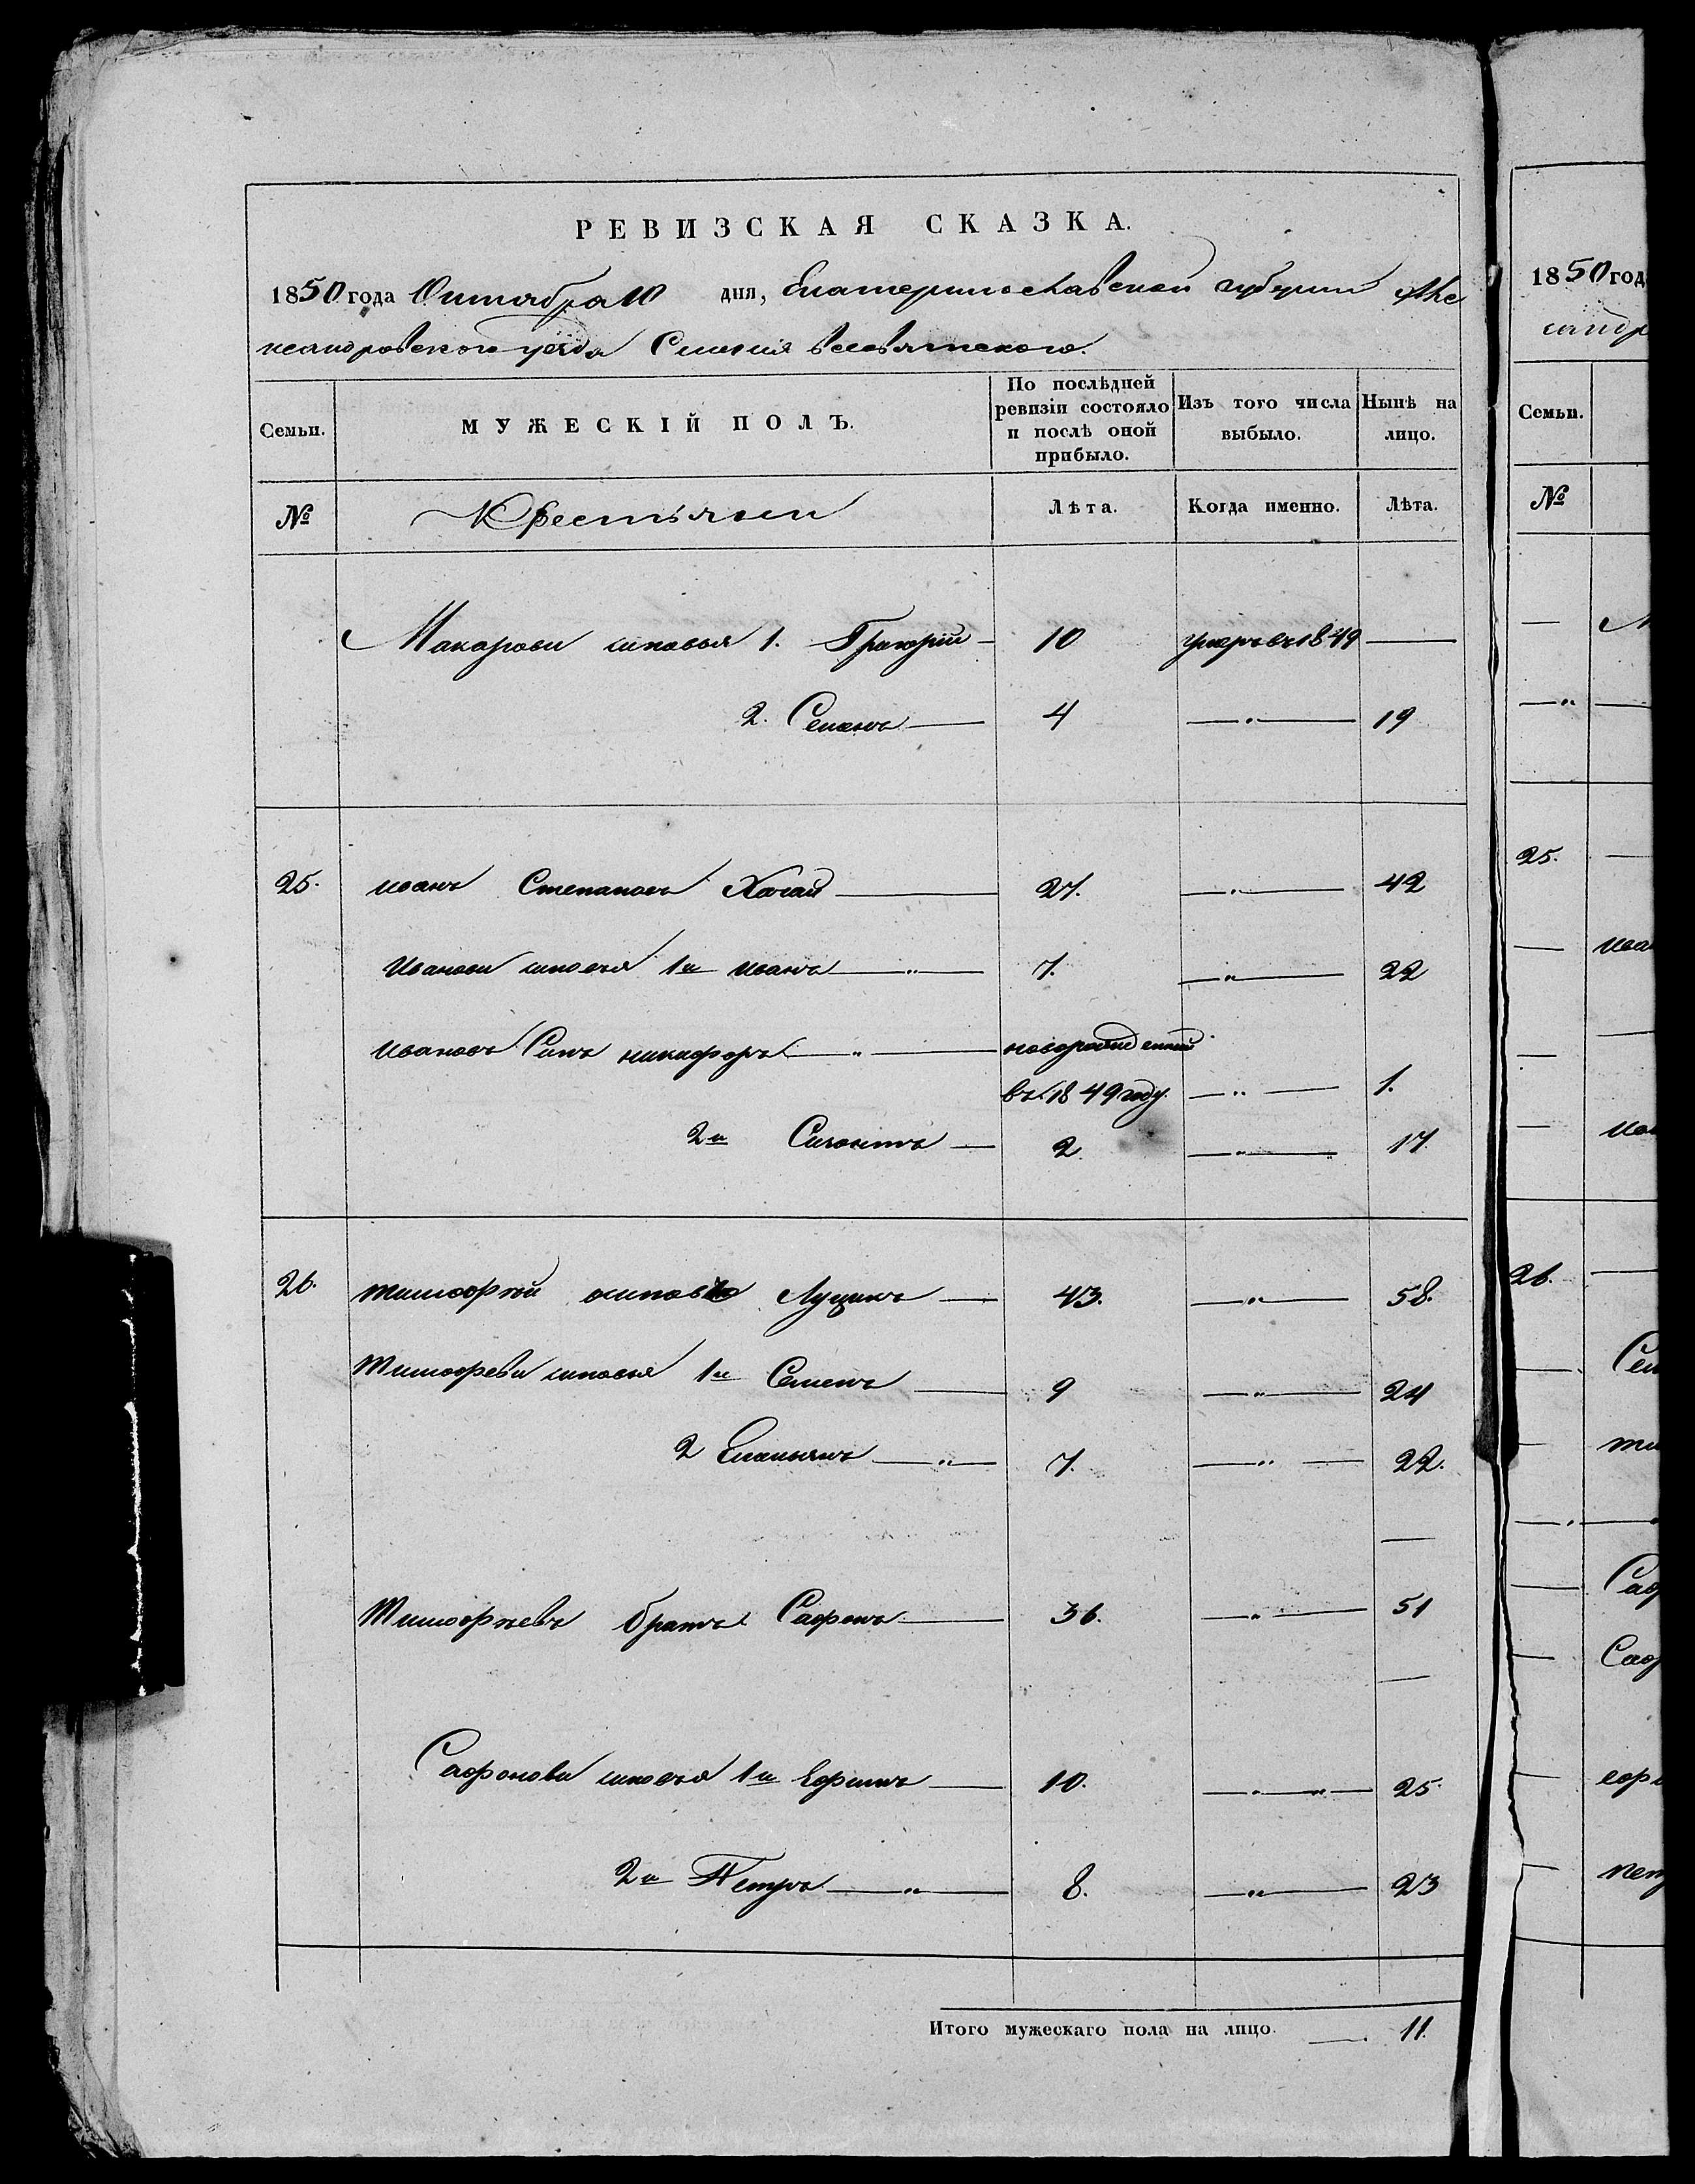 РЕВИЗСКАЯ СКАЗКА.
1850 года Октября 10 дня, Екатеринославской губернии Але
ксандровского уезда Селения всесвятского.
Семьи.
МУЖЕСКІЙ ПОЛЪ.
По послѣдней ревизіи состояло и послѣ оной прибыло.
Изъ того числа выбыло.
Нынѣ на лицо.
№ Крестьяни Лѣта. Когда именно. Лѣта.
Макарови синовья 1. Григорій — 10 умеръ въ 1849 —
2. Семенъ — 4 —"— 19
25. иванъ Степановъ — 27. —"— 42
Иванови синовья 1й иванъ —"— 7. —"— 22
ивановъ Синъ никифоръ —"— новорожденний
въ 1849 году. —"— 1.
2й — 2. —"— 17
26. тимофѣй осиповъ Лущикъ — 43. —"— 58.
Тимофееви синовья 1й Семенъ — 9 —"— 24
2 Емельянъ —"— 7. —"— 22.
—
Тимофѣевъ братъ Сафонъ — 36. —"— 51
—
Сафонови синовья 1й Ефимъ — 10. —"—"— 25.
2й Петръ —"— 8. —"— 23
Итого мужескаго пола на лицо. — 11.
1850 год
сандр
Семьи.
№
25.
ива
26.
Сем
ти
Саф
Саф
ефи
пет